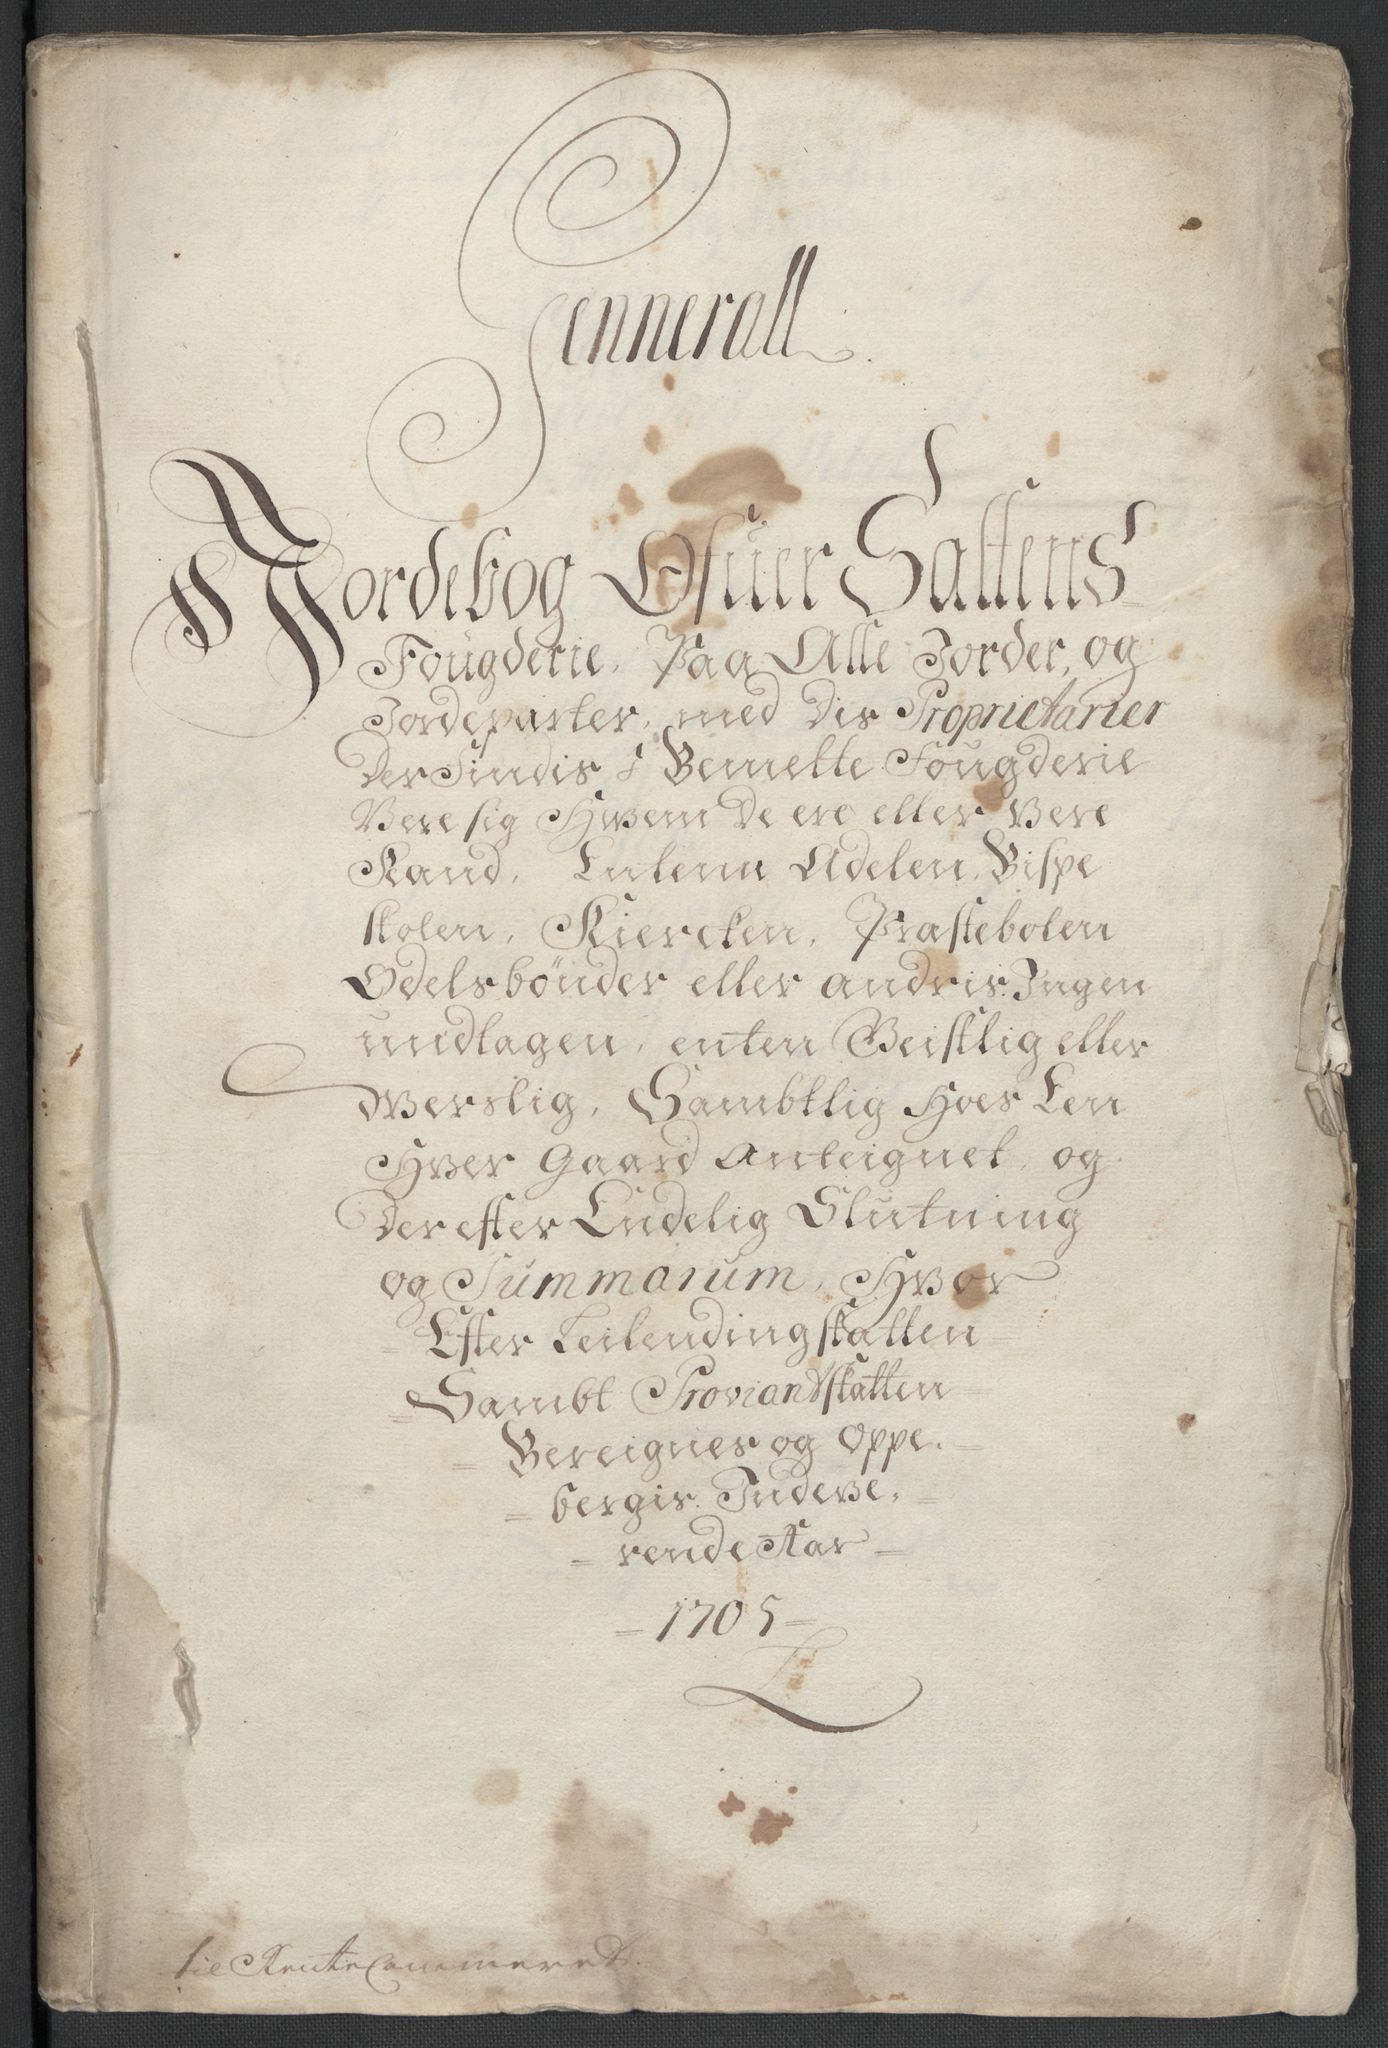 Gennerall
Jordebog Ofuer Saltens
Fougderie, Paa Alle Jorder, og
Jordeparter, med dis Proprietarier
der findis i Bemelte Fougderie
Vere sig Hvem de ere eller Vere
Kand, Entenn Adelen, Bispe
stolen, Kiercken, Præstebolen
Odelsbönder eller andris, Ingen
undtagen, enten Geistlig eller
Verslig, Sambtlig Hoes Een
Hver Gaard Anteignet, og
der efter Endelig Slutning
og Summarum, Hvor
Efter Leilendingskatten
Sambt Proviantskatten
Bereignes og Oppe-
bergis Indeve-
rende Aar
1705
til RenteCammeret